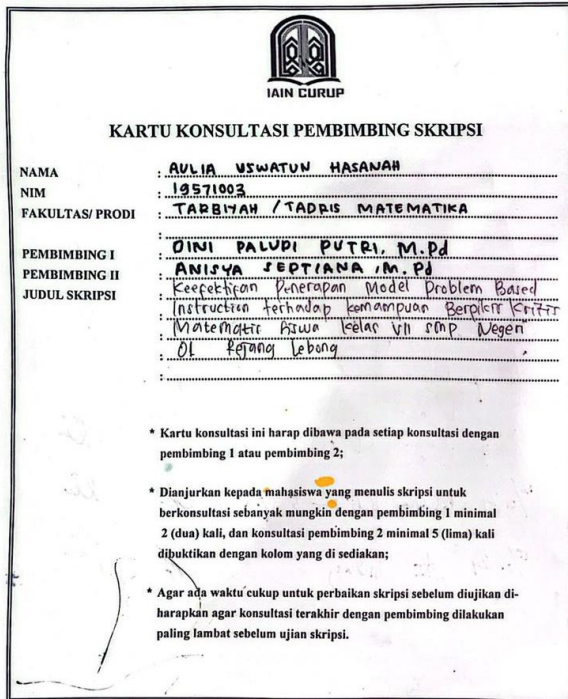 IAIN CURUP
KARTU KONSULTASI PEMBIMBING SKRIPSI
NAMA : AULIA USWATUN HASANAH
NIM : 19571003
FAKULTAS/ PRODI : TARBIYAH / TADRIS MATEMATIKA
:
PEMBIMBING I : DINI PALUPI PUTRI, M.Pd
PEMBIMBING II : ANISYA SEPTIANA, M.Pd
JUDUL SKRIPSI : Keefektifan Penerapan Model Problem Based
: Instruction terhadap kemampuan Berpikir Kritis
: Matematis Siswa kelas VII SMP Negeri
: 01 Rejang Lebong
:
* Kartu konsultasi ini harap dibawa pada setiap konsultasi dengan
pembimbing 1 atau pembimbing 2;
* Dianjurkan kepada mahasiswa yang menulis skripsi untuk
berkonsultasi sebanyak mungkin dengan pembimbing 1 minimal
2 (dua) kali, dan konsultasi pembimbing 2 minimal 5 (lima) kali
dibuktikan dengan kolom yang di sediakan;
* Agar ada waktu cukup untuk perbaikan skripsi sebelum diujikan di-
harapkan agar konsultasi terakhir dengan pembimbing dilakukan
paling lambat sebelum ujian skripsi.